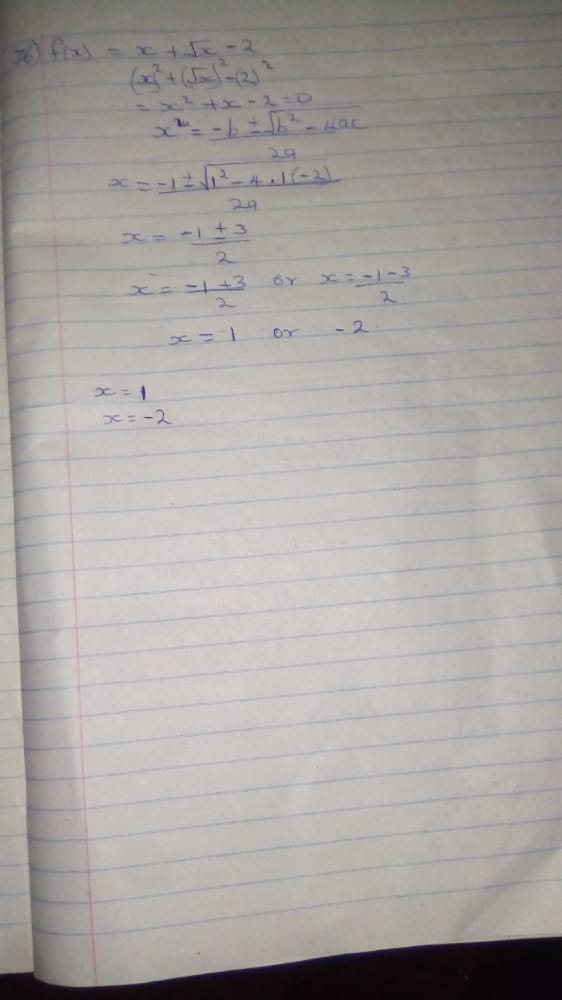 7b) f(x) = x + √x - 2
(x)² + (√x)² - (2)²
= x² + x - 2 = 0
x = -b ± √b² - 4ac
2a
x = -1 ± √1² - 4 . 1(-2)
2a
x = -1 ± 3
2
x = -1 + 3 or x = -1 - 3
2 2
x = 1 or - 2.
x = 1
x = -2